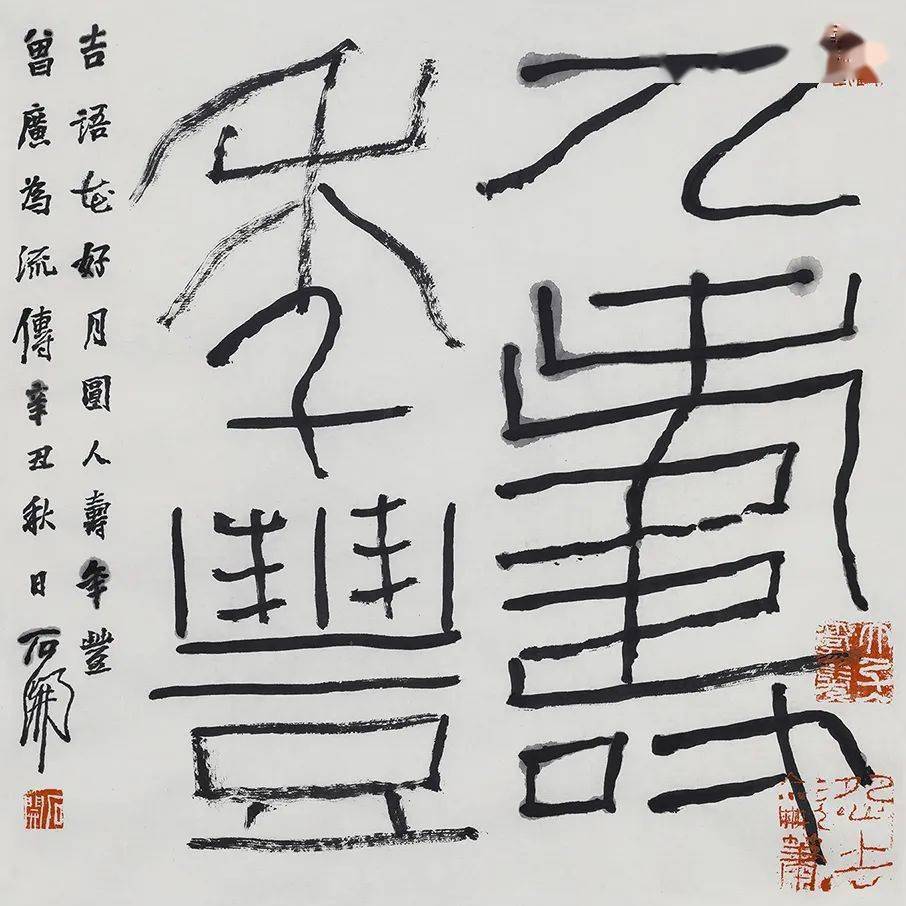 人壽
年豐
吉語花好月圓人壽年豐
曾廣為流傳辛丑秋日石開
石開